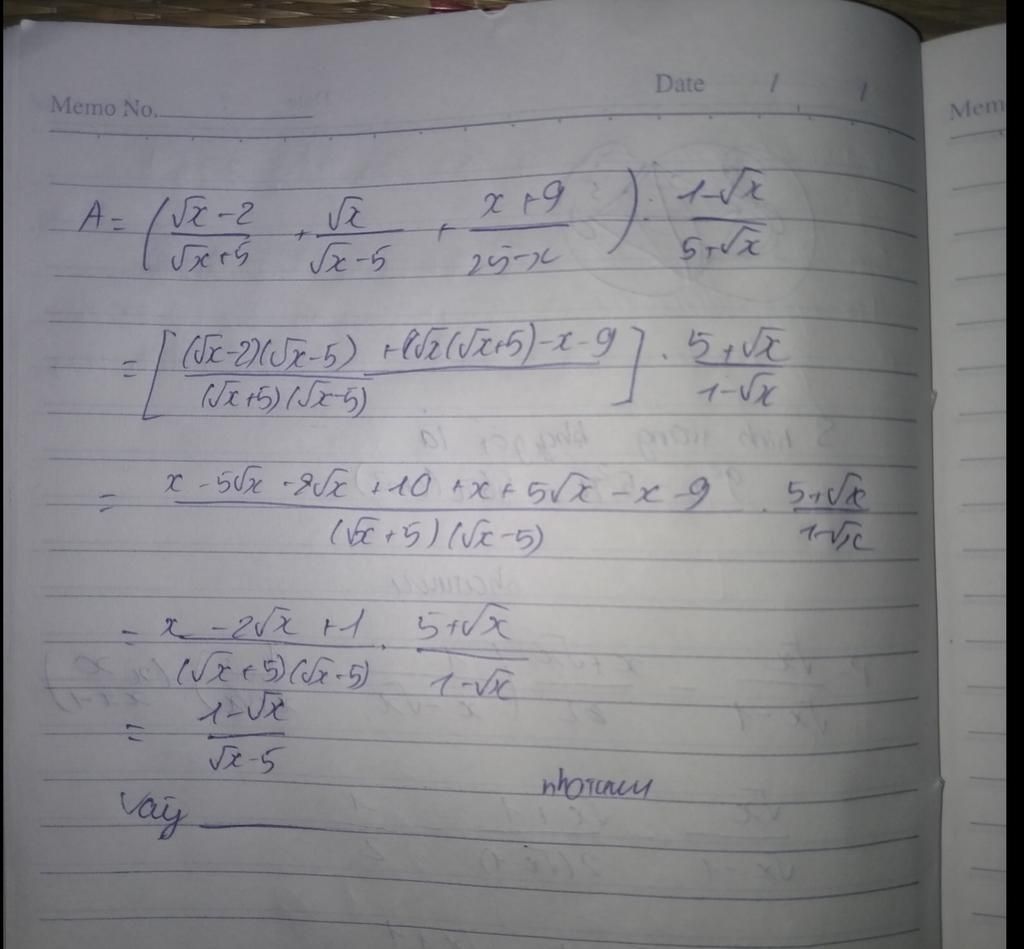 Memo No. Date / / Mem
A = ( (√x - 2)/(√x + 5) + √x/(√x - 5) + (x + 9)/(25 - x) ) : (1 - √x)/(5 + √x)
= [ ((√x - 2)(√x - 5) + √x(√x + 5) - x - 9)/((√x + 5)(√x - 5)) ] . (5 + √x)/(1 - √x)
= (x - 5√x - 2√x + 10 + x + 5√x - x - 9)/((√x + 5)(√x - 5)) . (5 + √x)/(1 - √x)
= (x - 2√x + 1)/((√x + 5)(√x - 5)) . (5 + √x)/(1 - √x)
= (1 - √x)/(√x - 5)
Vậy